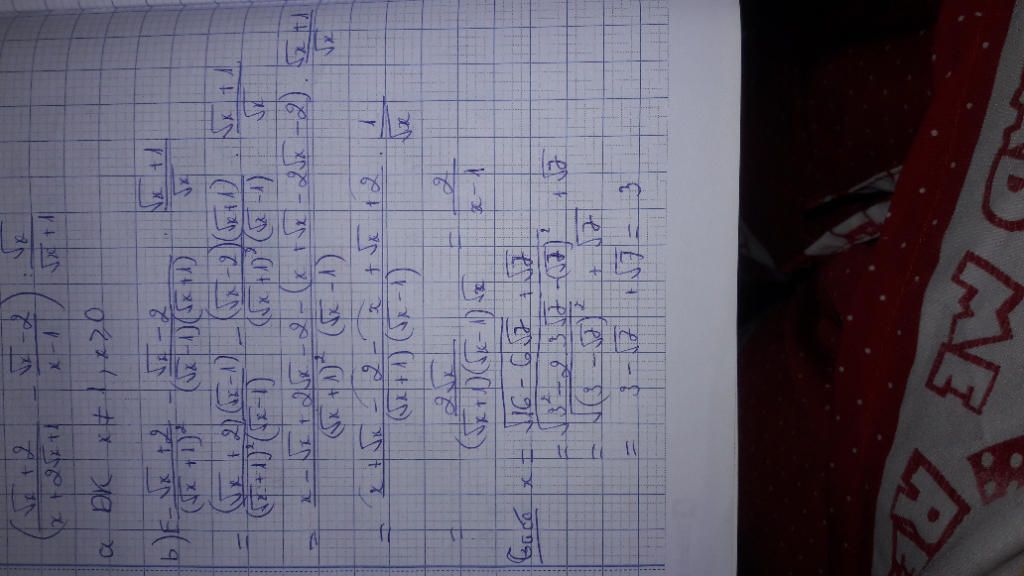 (√x + 2 / x + 2√x + 1 − √x − 2 / x − 1) : √x / √x + 1
a ĐK x ≠ 1, x ≥ 0
b) F = √x + 2 / (√x + 1)² − √x − 2 / (√x − 1)(√x + 1) . √x + 1 / √x
= (√x + 2)(√x − 1) / (√x + 1)²(√x − 1) − (√x − 2)(√x + 1) / (√x + 1)²(√x − 1) . √x + 1 / √x
= x − √x + 2√x − 2 − (x + √x − 2√x − 2) / (√x + 1)² (√x − 1) . √x + 1 / √x
= x + √x − 2 − x + √x + 2 / (√x + 1)(√x − 1) . 1 / √x
= 2√x / (√x + 1)(√x − 1)√x = 2 / x − 1
x = √16 − 6√7 + √7
= √3² − 2.3√7 − (√7)² + √7
= √(3 − √7)² + √7
= 3 − √7 + √7 = 3
BAD
ME
RE